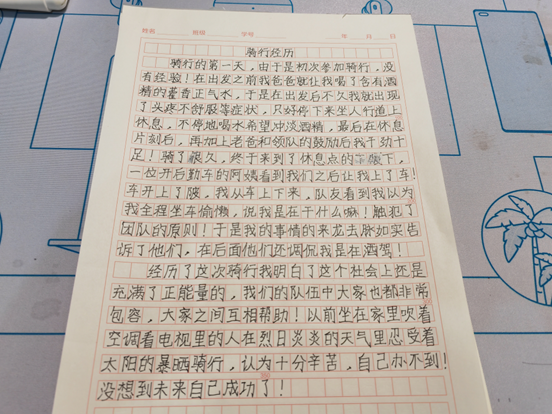 姓名 班级 学号 年 月 日
骑行经历
骑行的第一天，由于是初次参加骑行，没
有经验！在出发之前我爸爸就让我喝了含有酒
精的藿香正气水，于是在出发后不久我就出现
了头疼不舒服等症状，只好停下来坐人行道上
休息，不停地喝水希望冲淡酒精，最后在休息
片刻后，再加上老爸和领队的鼓励后我干劲十
足！骑了很久，终于来到了休息点的 下，
一位开后勤车的阿姨看到我们之后让我上了车！
车开上了陂，我从车上下来，队友看到我以为
我全程坐车偷懒，说我是在干什么嘛！触犯了
团队的原则！于是我的事情的来龙去脉如实告
诉了他们，在后面他们还调侃我是在酒驾！
经历了这次骑行我明白了这个社会上还是
充满了正能量的，我们的队伍中大家也都非常
包容，大家之间互相帮助！以前坐在家里吹着
空调看电视里的人在烈日炎炎的天气里忍受着
太阳的暴晒骑行，认为十分辛苦，自己办不到！
没想到未来自己成功了！